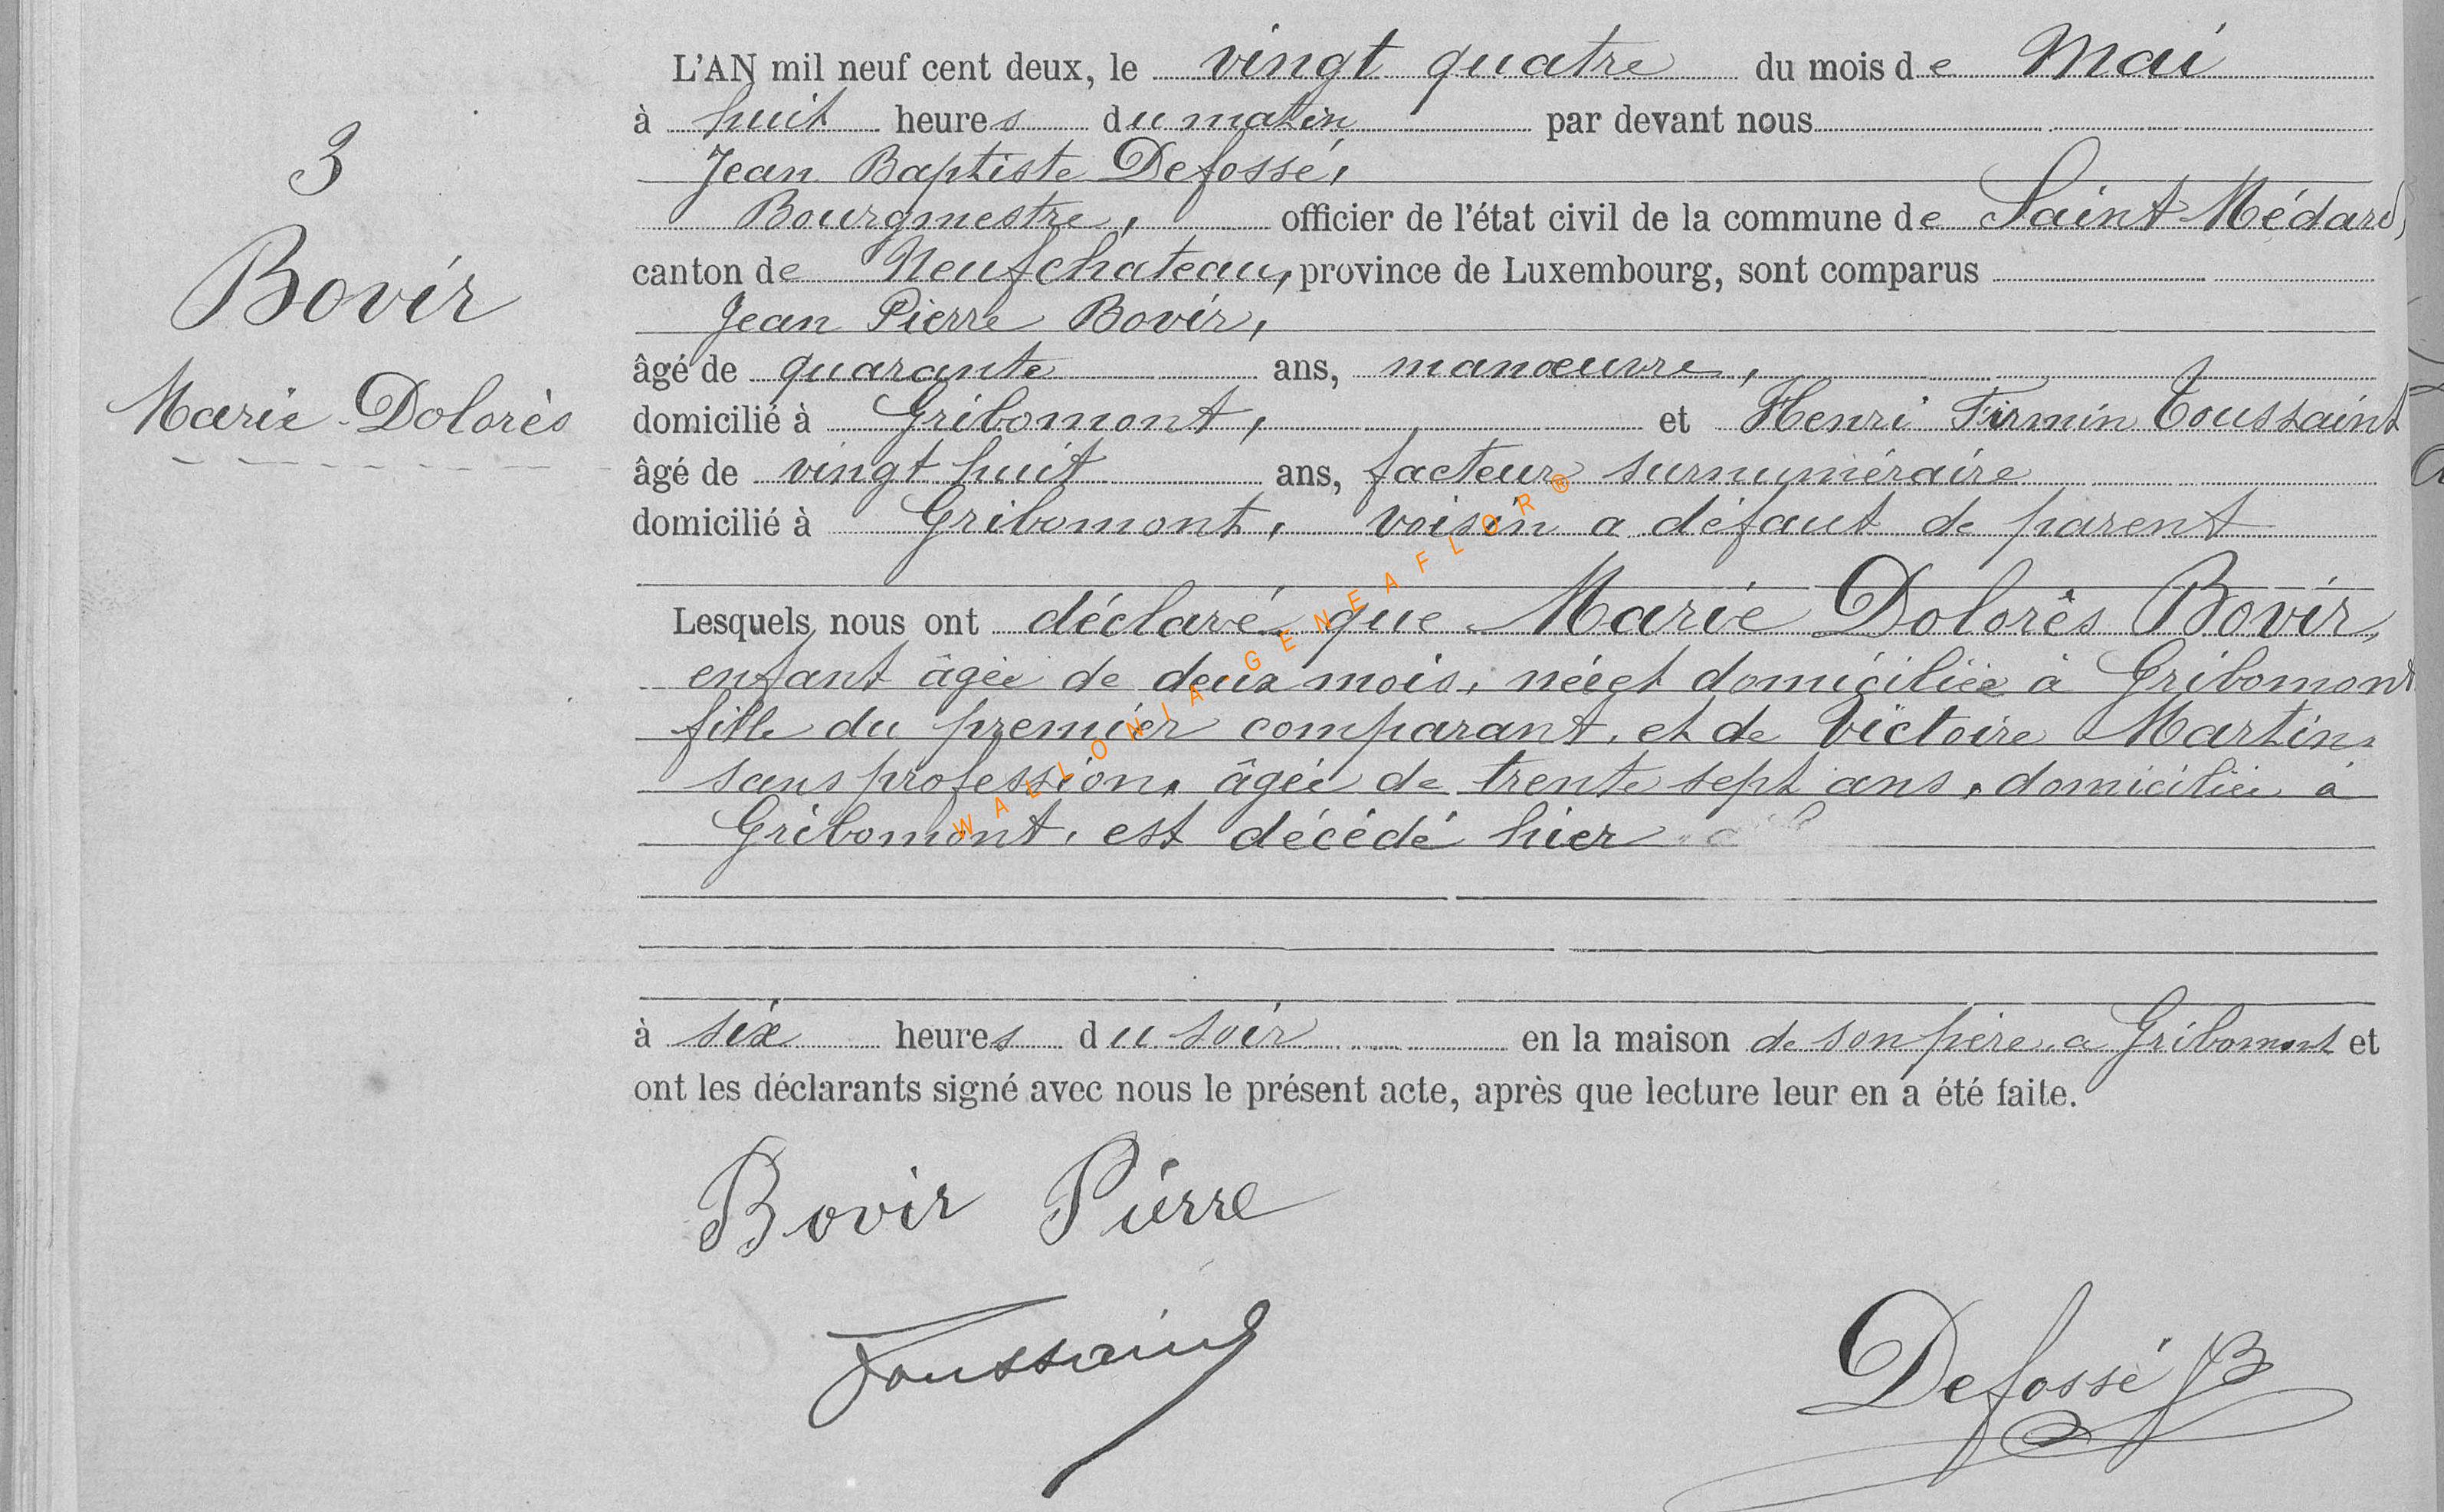 3
Bovir
Marie Dolorès
L'AN mil neuf cent deux, le vingt quatre du mois de Mai
à huit heures du matin par devant nous
Jean Baptiste Defossé,
Bourgmestre, officier de l'état civil de la commune de Saint Médard,
canton de Neufchateau, province de Luxembourg, sont comparus
Jean Pierre Bovir,
âgé de quarante ans, manœuvre,
domicilié à Gribomont, et Henri Firmin Toussaint
âgé de vingt huit ans, facteur surnuméraire
domicilié à Gribomont, voisin a défaut de parent
Lesquels nous ont déclaré que Marie Dolorès Bovir,
enfant âgée de deux mois, née et domiciliée à Gribomont
fille du premier comparant, et de Victoire Martin,
sans profession, âgée de trente sept ans, domiciliée à
Gribomont, est décédé hier
à six heures du soir en la maison de son père a Gribomont et
ont les déclarants signé avec nous le présent acte, après que lecture leur en a été faite.
Bovir Pierre
Toussaint
Defossé JB
WALLONIA - GENEAFLOR®